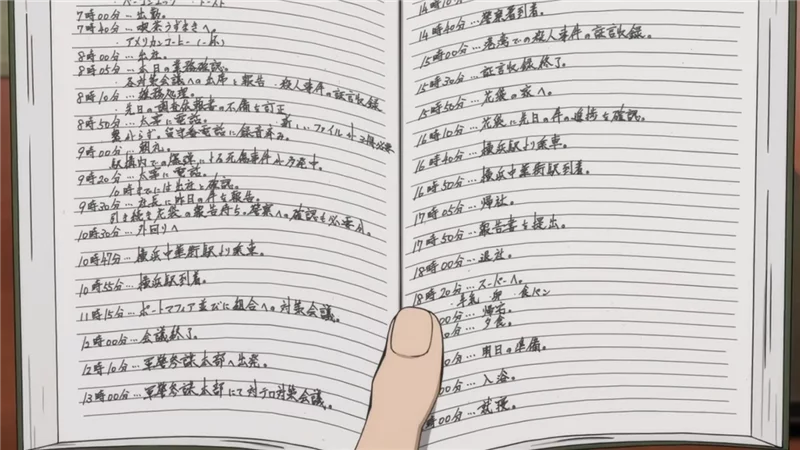 ベーコンエッグ トースト
7時00分…出勤。
7時40分…喫茶うずまきへ。
・アメリカンコーヒー(一杯)
8時00分…出社。
8時05分…本日の業務確認。
・各対策会議への出席と報告 ・殺人事件の証言収録
8時10分…雑務処理。
・先日の調査依頼書の不備を訂正
8時50分…太宰に電話。 新しいファイルが
繋がらず。留守番電話に録音済み。
9時00分…朝礼。
駅構内での爆弾による死傷事件が
9時20分…太宰に電話。
10時までには出社と確認。
9時30分…社長に昨日の件を報告。
引き続き花袋の報告待ち。警察への確認も必要な。
10時30分…外回りへ
10時47分…横浜中華街駅より乗車。
10時55分…横浜駅到着。
11時15分…ポートマフィア並びに組合への対策会議。
12時00分…会議終了。
12時10分…軍警参謀本部へ出発。
13時00分…軍警参謀本部にて対テロ対策会議。
14時10分
14時40分…警察署到着。
15時00分…での殺人事件の証言収録。
15時30分…証言収録終了。
15時50分…花袋の家へ。
16時10分…花袋に先日の件の進捗を確認。
16時40分…横浜駅より乗車。
16時50分…横浜中華街駅到着。
17時05分…帰社。
17時50分…報告書を提出。
18時00分…退社。
18時20分…スーパーへ。
・牛乳 卵 ・食パン
00分…帰宅。
0分…夕食。
…明日の準備。
00分…入浴。
00分…就寝。